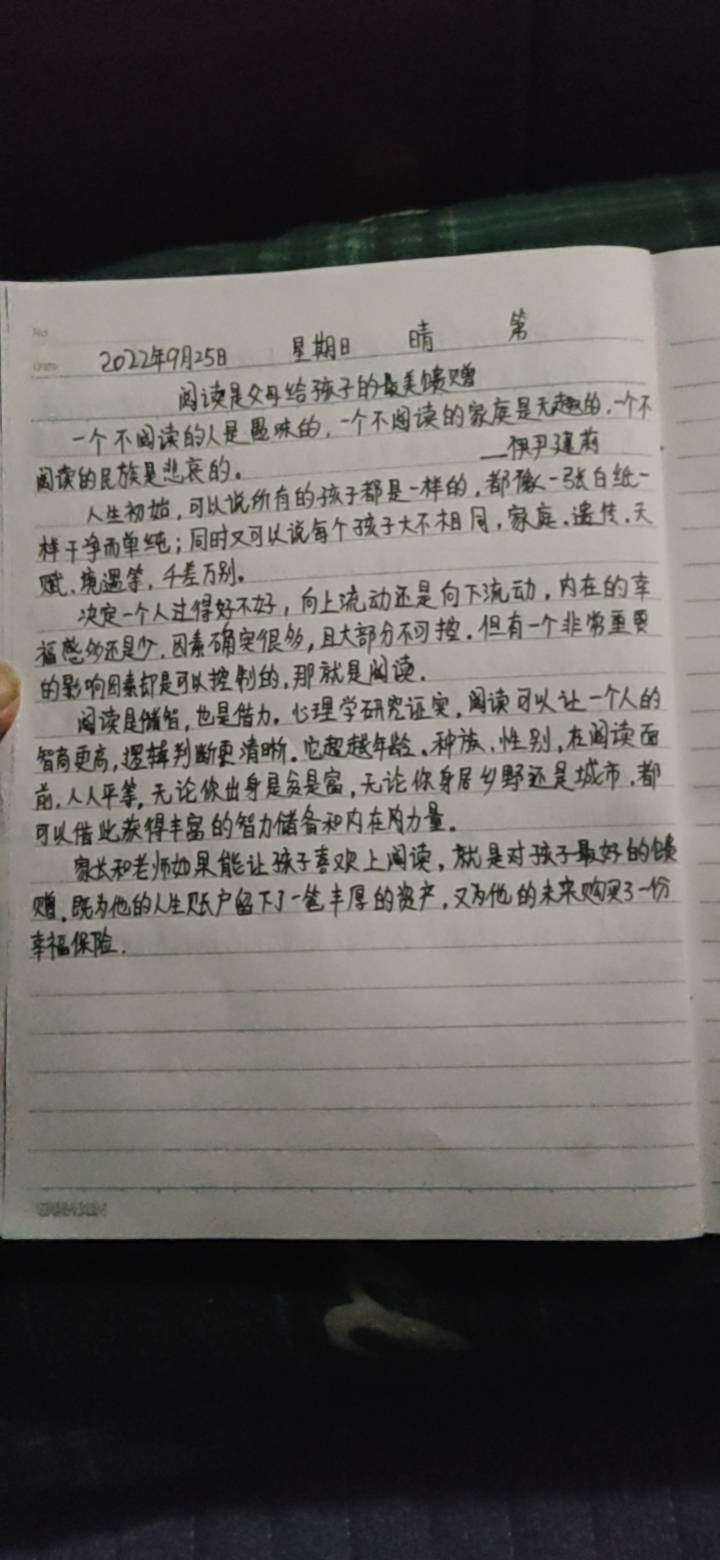 No
Date
2022年9月25日 星期日 晴 第
阅读是父母给孩子的最美馈赠
一个不阅读的人是愚昧的，一个不阅读的家庭是无趣的，一个不
阅读的民族是悲哀的。
——尹建莉
人生初始，可以说所有的孩子都是一样的，都像一张白纸一
样干净而单纯；同时又可以说每个孩子大不相同，家庭、遗传、天
赋、境遇等，千差万别。
决定一个人过得好不好，向上流动还是向下流动，内在的幸
福感多还是少，因素确实很多，且大部分不可控。但有一个非常重要
的影响因素却是可以控制的，那就是阅读。
阅读是储智，也是借力。心理学研究证实，阅读可以让一个人的
智商更高，逻辑判断更清晰。它超越年龄、种族、性别，在阅读面
前，人人平等，无论你出身是贫是富，无论你身居乡野还是城市，都
可以借此获得丰富的智力储备和内在内力量。
家长和老师如果能让孩子喜欢上阅读，就是对孩子最好的馈
赠，既为他的人生账户留下了一笔丰厚的资产，又为他的未来购买了一份
幸福保险。